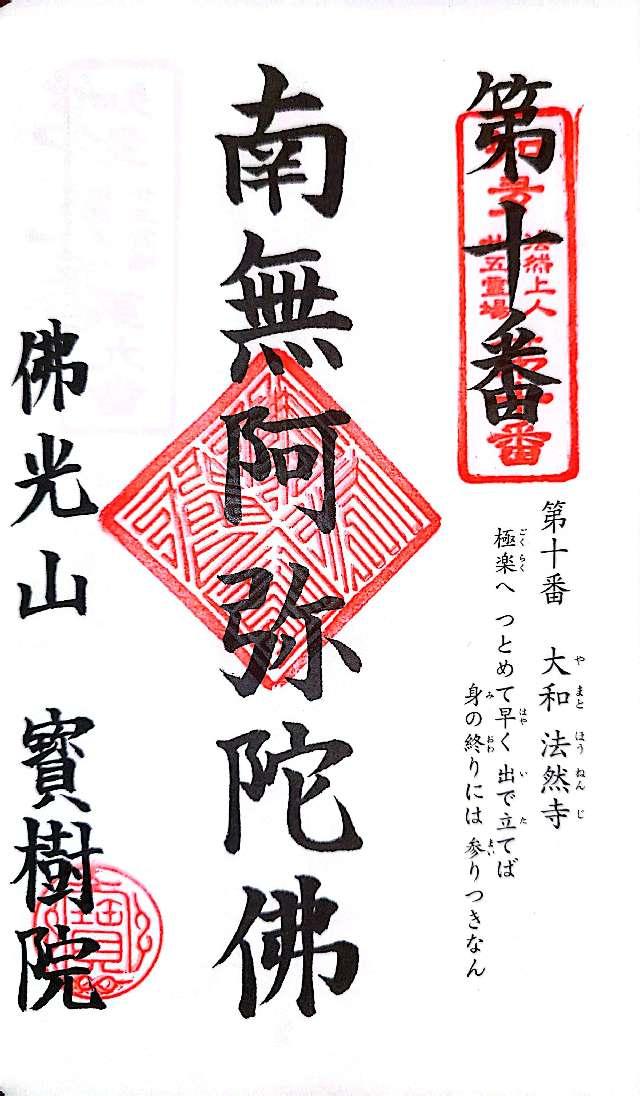 第十番
法然上人
卅五霊場
番
第十番 大和 法然寺
やまと ほうねんじ
極楽へ つとめて早く 出で立てば
ごくらく はや い た
身の終りには 参りつきなん
み おわ まい
南無阿弥陀佛
佛光山 寳樹院